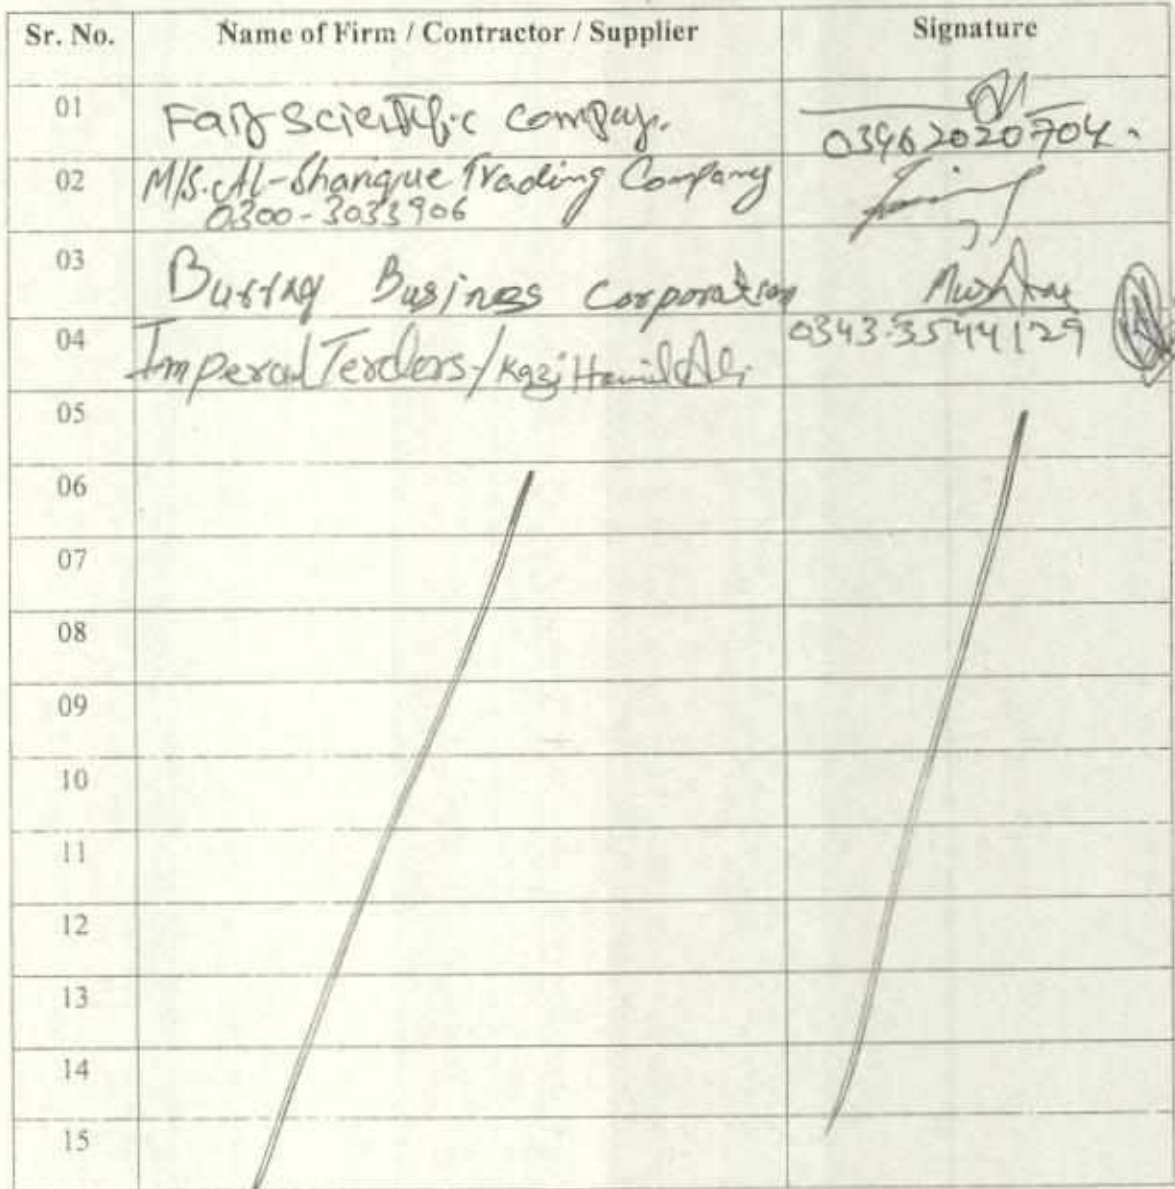 Sr. No. Name of Firm / Contractor / Supplier Signature
01 Scientific Company. 03462020704.
02 M/S. Al-Sharique Trading Company
0300-3033906
03 Business Corporation
04 Imperal Terders / Kazi Hamid Ali 0343-3544129
05
06
07
08
09
10
11
12
13
14
15